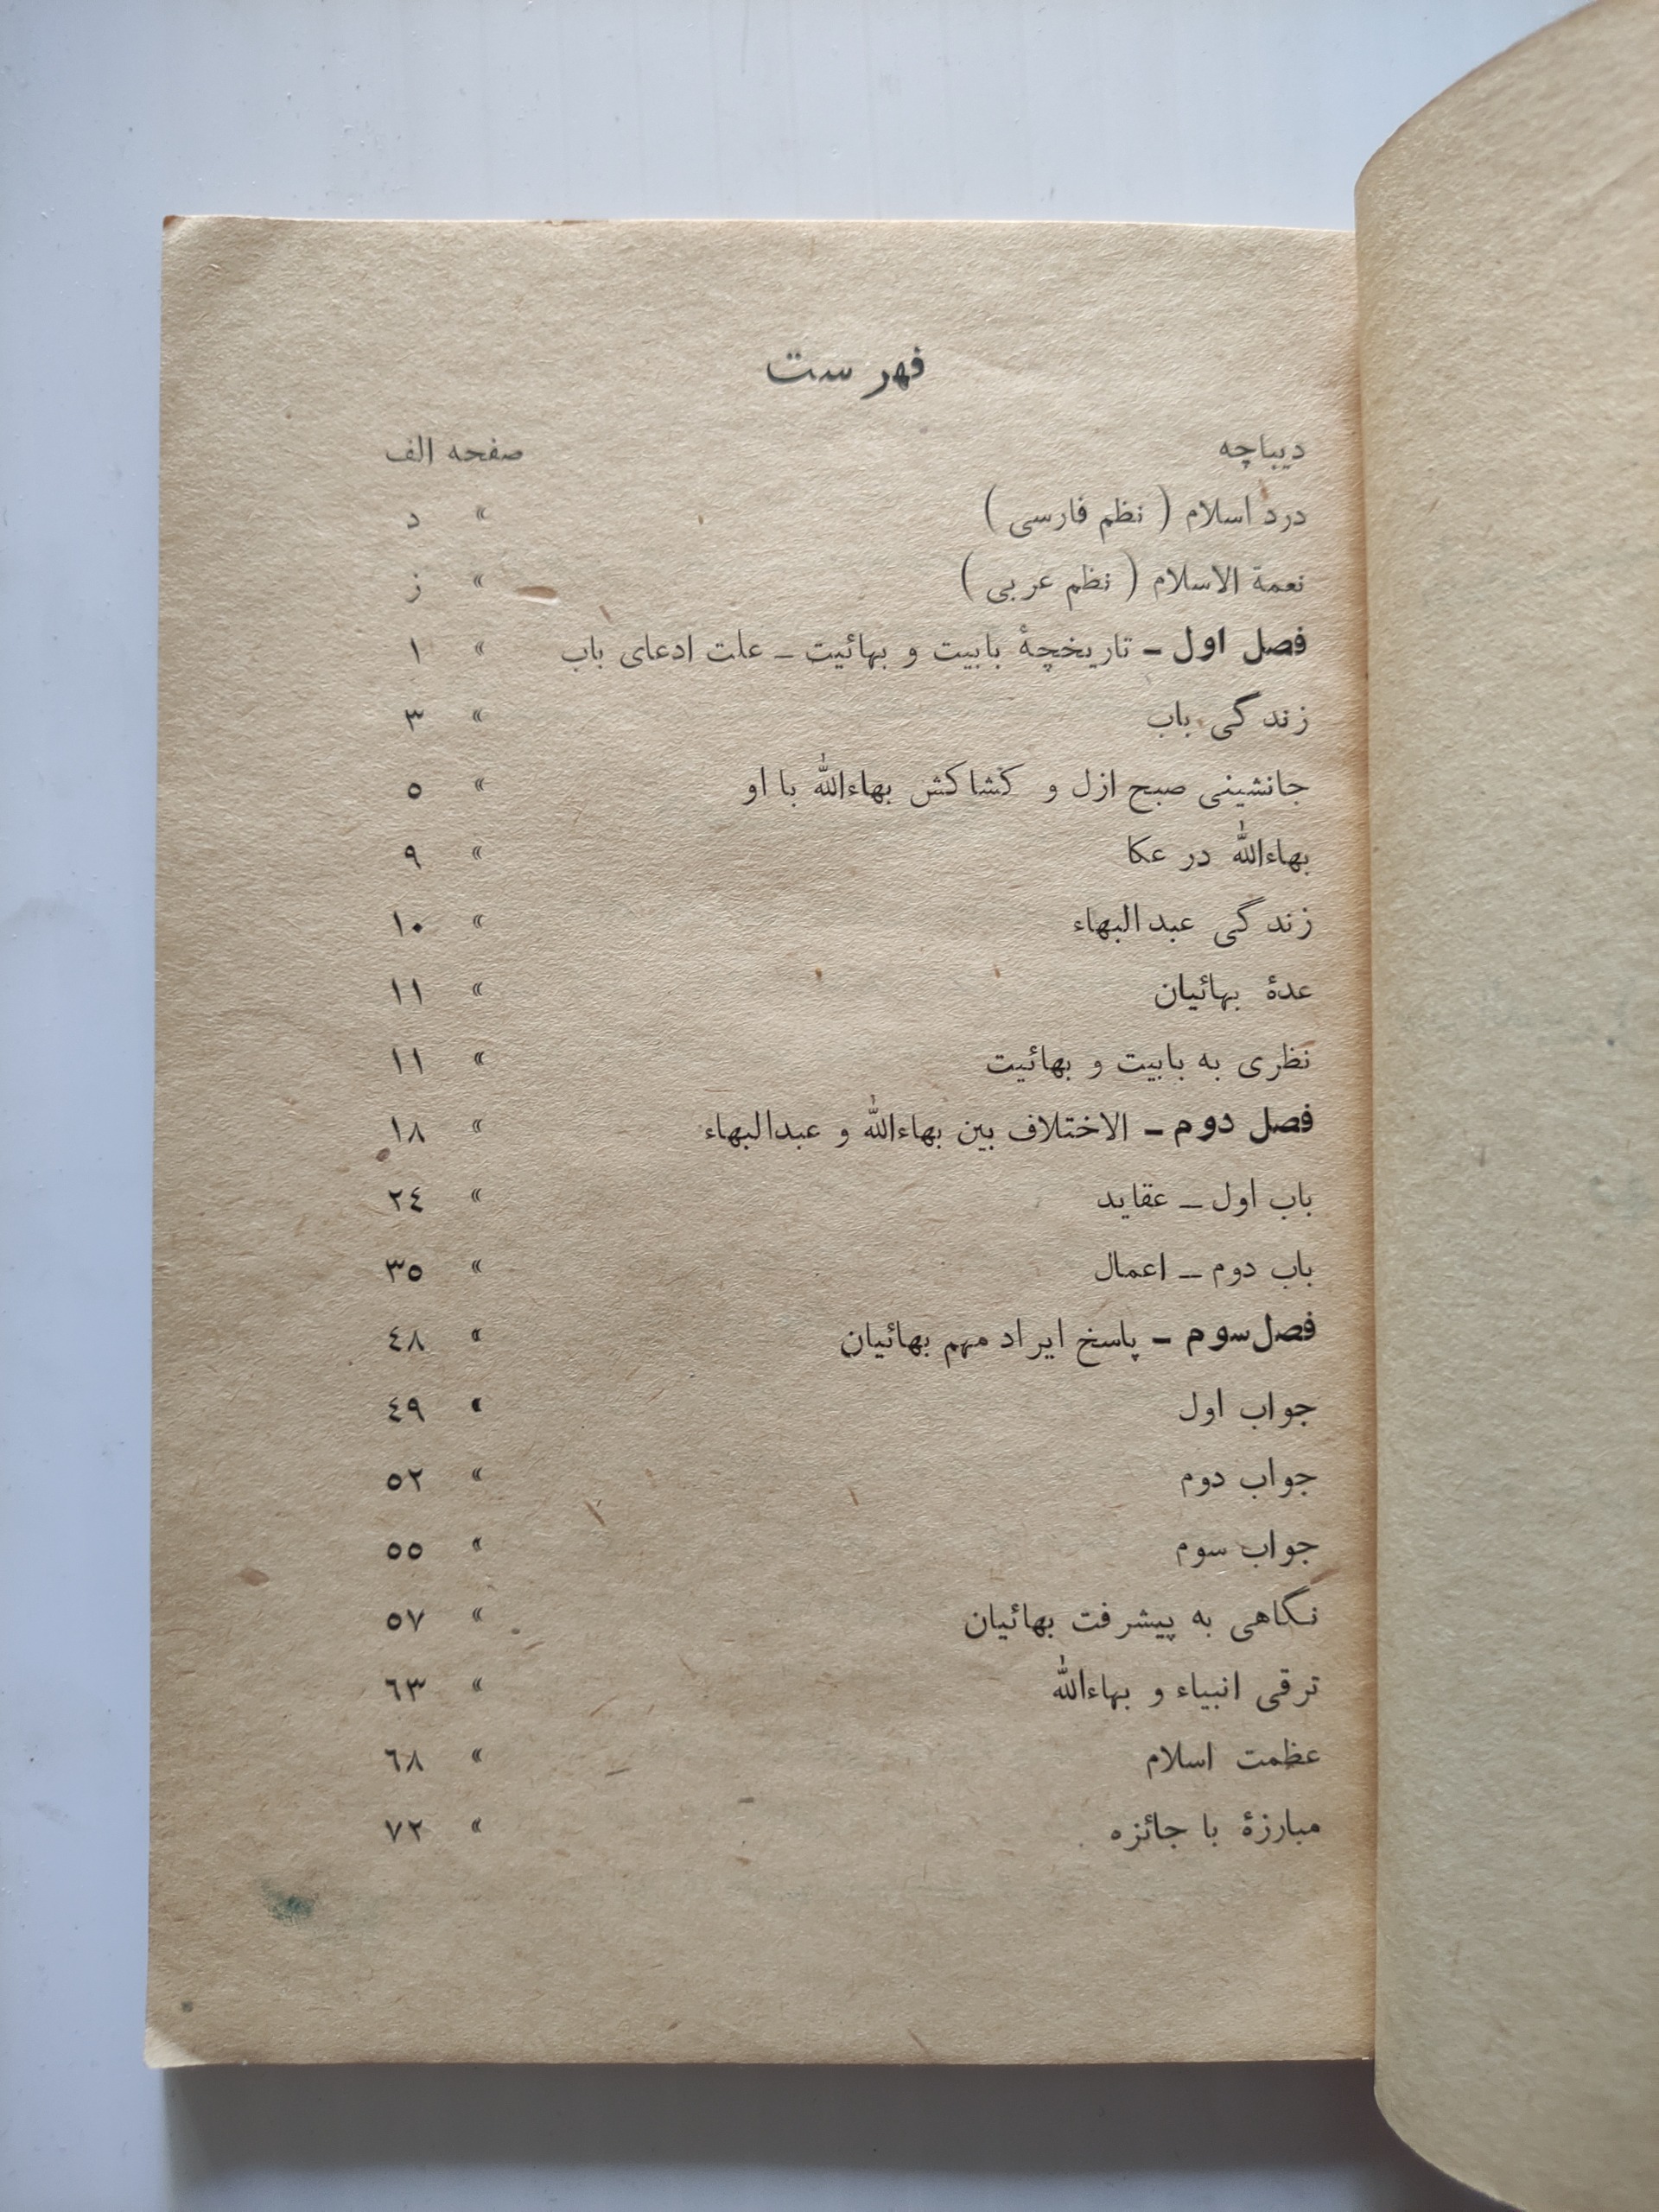 فهرست
دیباچه صفحه الف
درد اسلام ( نظم فارسی ) » د
نعمة الاسلام ( نظم عربی ) » ز
فصل اول ـ تاریخچهٔ بابیت و بهائیت ـ علت ادعای باب » ۱
زندگی باب » ۳
جانشینی صبح ازل و کشاکش بهاءالله با او » ٥
بهاءالله در عکا » ۹
زندگی عبدالبهاء » ۱۰
عدهٔ بهائیان » ۱۱
نظری به بابیت و بهائیت » ۱۱
فصل دوم ـ الاختلاف بین بهاءالله و عبدالبهاء » ۱۸
باب اول ـ عقاید » ۲٤
باب دوم ـ اعمال » ۳٥
فصل سوم ـ پاسخ ایراد مهم بهائیان » ٤۸
جواب اول » ٤۹
جواب دوم » ٥۲
جواب سوم » ٥٥
نگاهی به پیشرفت بهائیان » ٥۷
ترقی انبیاء و بهاءالله » ٦۳
عظمت اسلام » ٦۸
مبارزهٔ با جائزه » ۷۲